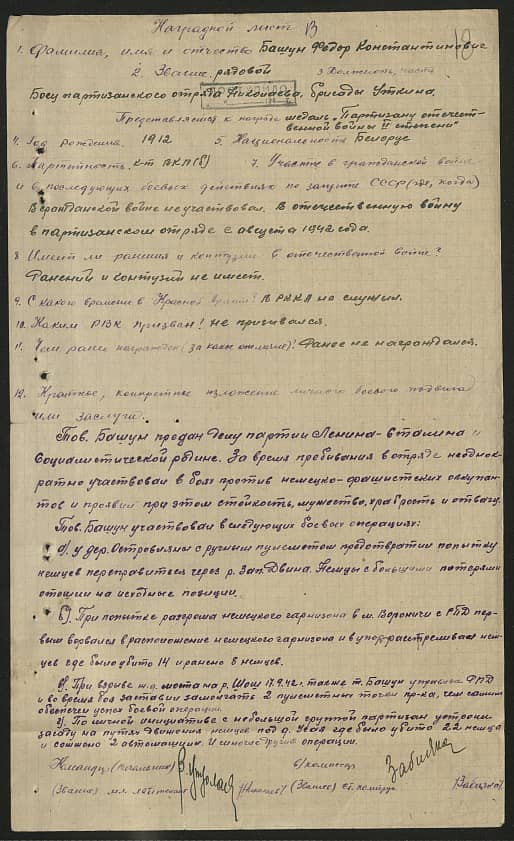 Наградной лист В
18
1. Фамилия, имя и отчество Башун Федор Константинович
2. Звание рядовой 3. Должность, часть
Боец партизанского отряда Николаева, бригады Уткина.
Представляется к награде медаль "Партизану отечест-
венной войны II степени"
4. Год рождения 1912 5. Национальность Белорус
6. Партийность к-т ВКП(б) 7. Участие в гражданской войне
и в последующих боевых действиях по защите СССР (где, когда)
В гражданской войне не участвовал. В отечественную войну
в партизанском отряде с августа 1942 года.
8. Имеет ли ранения и контузии в отечественной войне?
Ранений и контузий не имеет.
9. С какого времени в Красной армии? В РККА не служил.
10. Каким РВК призван? Не призывался.
11. Чем ранее награжден (за какие отличия)? Ранее не награждался.
12. Краткое, конкретное изложение личного боевого подвига
или заслуги.
Тов. Башун предан делу партии Ленина-Сталина и
социалистической родине. За время пребывания в отряде неоднок-
ратно участвовал в боях против немецко-фашистских оккупан-
тов и проявил при этом стойкость, мужество, храбрость и отвагу.
Тов. Башун участвовал в следующих боевых операциях:
а) у дер. Островляны с ручным пулеметом предотвратил попытку
немцев переправиться через р. Зап. Двина. Немцы с большими потерями
отошли на исходные позиции.
б) При попытке разгрома немецкого гарнизона в м. Вороничи с РПД пер-
вым ворвался в расположение немецкого гарнизона и в упор расстреливал нем-
цев где было убито 14 и ранено 5 немцев.
в) При взрыве ж.д. моста на р. 17.9.42г. также т. Башун РПД
и во время боя заставил замолчать 2 пулеметных точки пр-ка, чем самым
обеспечен успех боевой операции.
г) По личной инициативе с небольшой группой партизан устроил
засаду на путях движения немцев под д. где было убито 22 немца
и сожжено 2 автомашины. И другие операции.
Командир
(Звание) мл. лейтенант (Звание) ст.